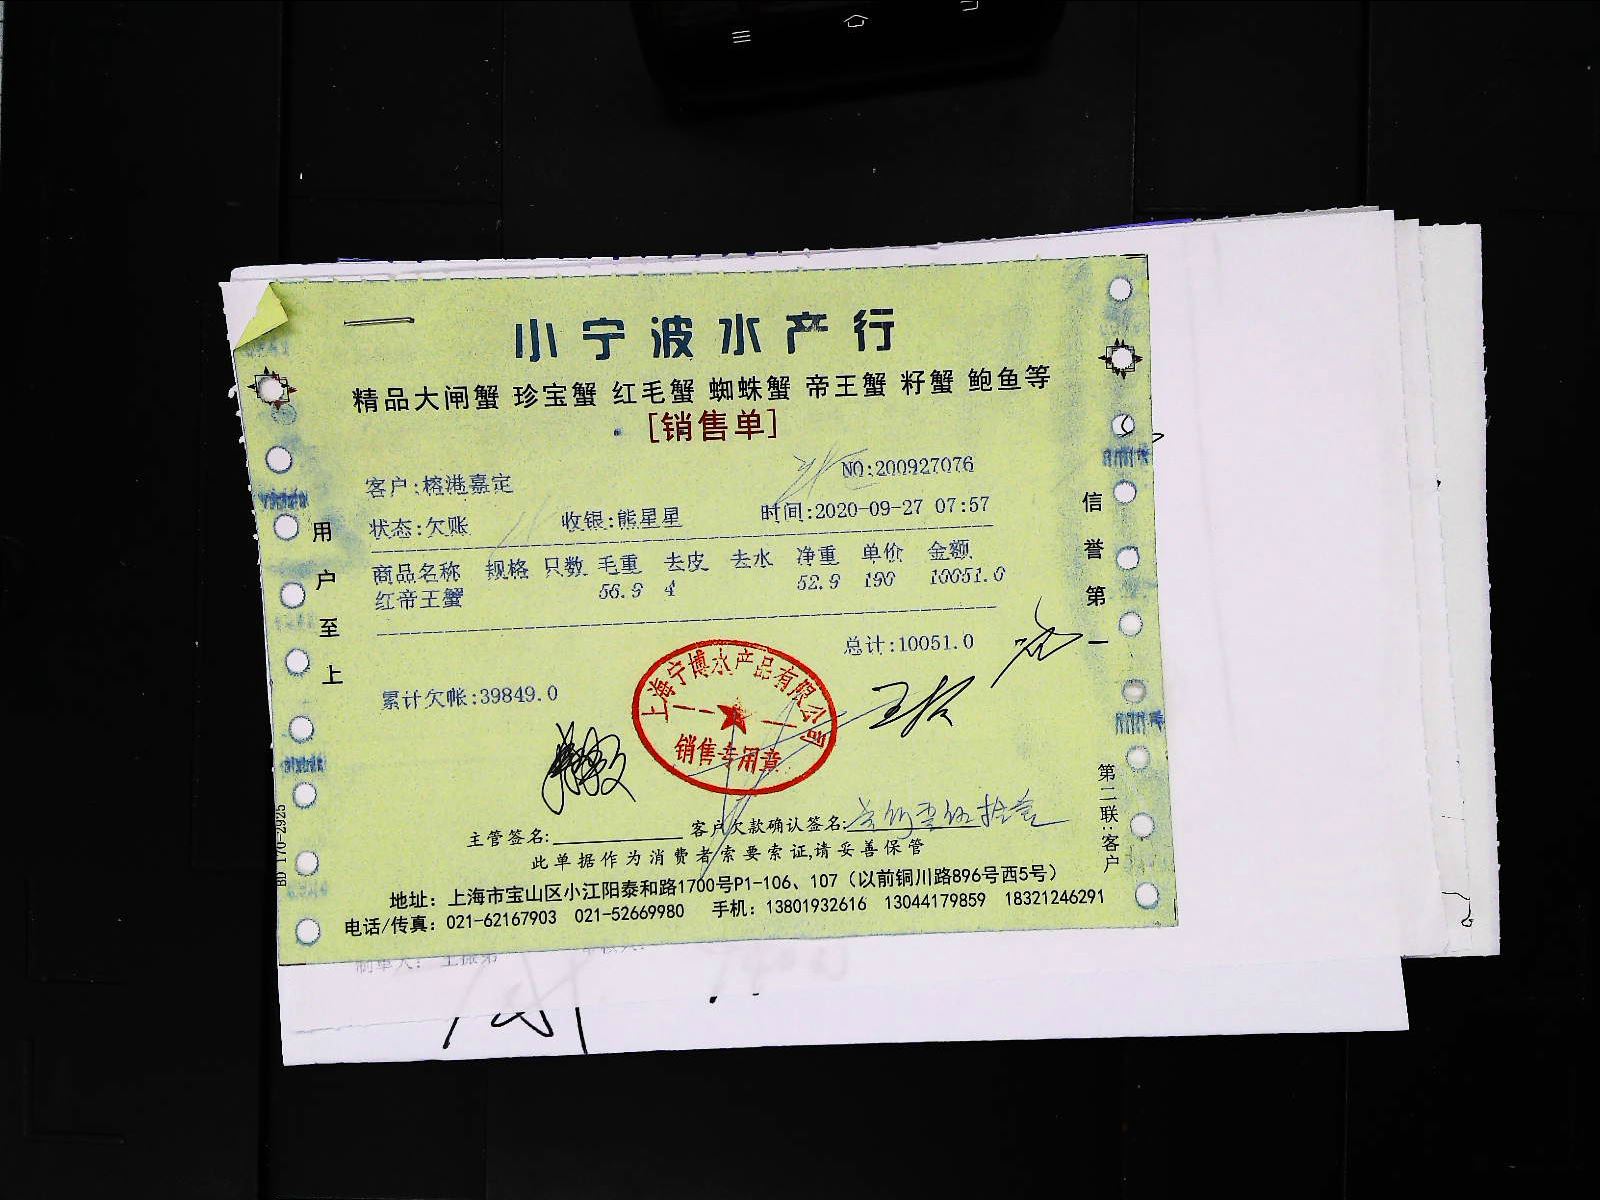 小宁波水产行
精品大闸蟹 珍宝蟹 红毛蟹 蜘蛛蟹 帝王蟹 籽蟹 鲍鱼等
[销售单]
NO:200927076
客户:榕港嘉定
状态:欠账 收银:熊星星 时间:2020-09-27 07:57
商品名称 规格 只数 毛重 去皮 去水 净重 单价 金额
红帝王蟹 56.9 4 52.9 190 10051.0
总计:10051.0
累计欠帐:39849.0
上海宁博水产品有限公司
销售专用章
主管签名: 客户欠款确认签名:
此单据作为消费者索要索证,请妥善保管
地址：上海市宝山区小江阳泰和路1700号P1-106、107（以前铜川路896号西5号）
电话/传真：021-62167903 021-52669980 手机：13801932616 13044179859 18321246291
用户至上
信誉第一
第二联:客户
BD 170-2925